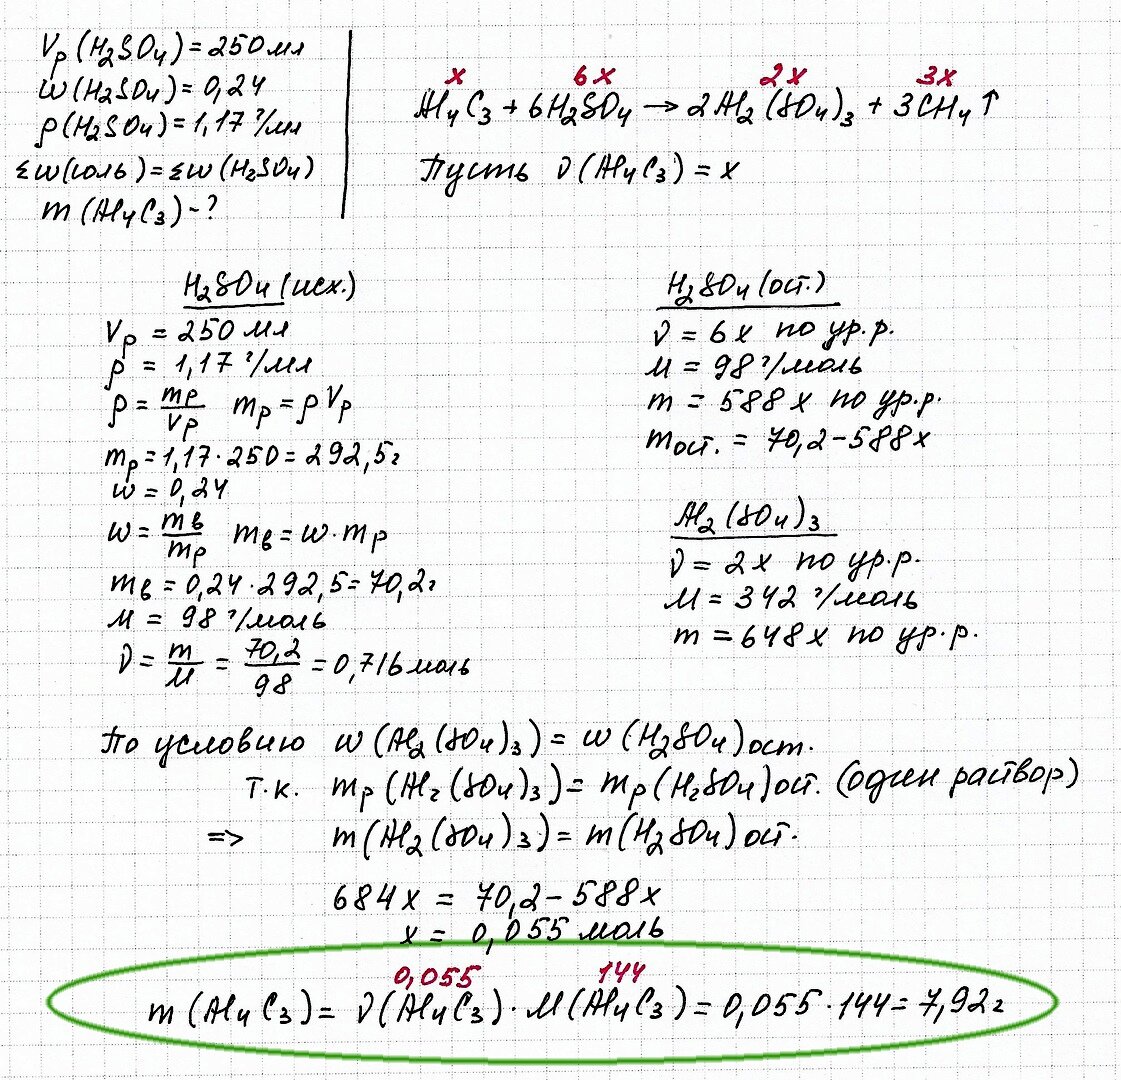 Vр(H2SO4)=250мл
w(H2SO4)=0,24
ρ(H2SO4)=1,17 г/мл
Σw(соль)=Σw(H2SO4)
m(Al4C3)-?
x 6x 2x 3x
Al4C3 + 6H2SO4 → 2Al2(SO4)3 + 3CH4↑
Пусть ν(Al4C3) = x
H2SO4 (исх.)
Vр = 250 мл
ρ = 1,17 г/мл
ρ = mр/Vр mр = ρVр
mр = 1,17·250 = 292,5г
w = 0,24
w = mв/mр mв = w·mр
mв = 0,24·292,5 = 70,2г
M = 98 г/моль
ν = m/M = 70,2/98 = 0,716 моль
H2SO4 (ост.)
ν = 6x по ур.р.
M = 98 г/моль
m = 588x по ур.р.
mост. = 70,2-588x
Al2(SO4)3
ν = 2x по ур.р.
M = 342 г/моль
m = 648x по ур.р.
По условию w(Al2(SO4)3) = w(H2SO4)ост.
т.к. mр(Al2(SO4)3) = mр(H2SO4)ост. (один раствор)
=> m(Al2(SO4)3) = m(H2SO4)ост.
684x = 70,2-588x
x = 0,055 моль
0,055 144
m(Al4C3) = ν(Al4C3)·M(Al4C3) = 0,055·144 = 7,92г